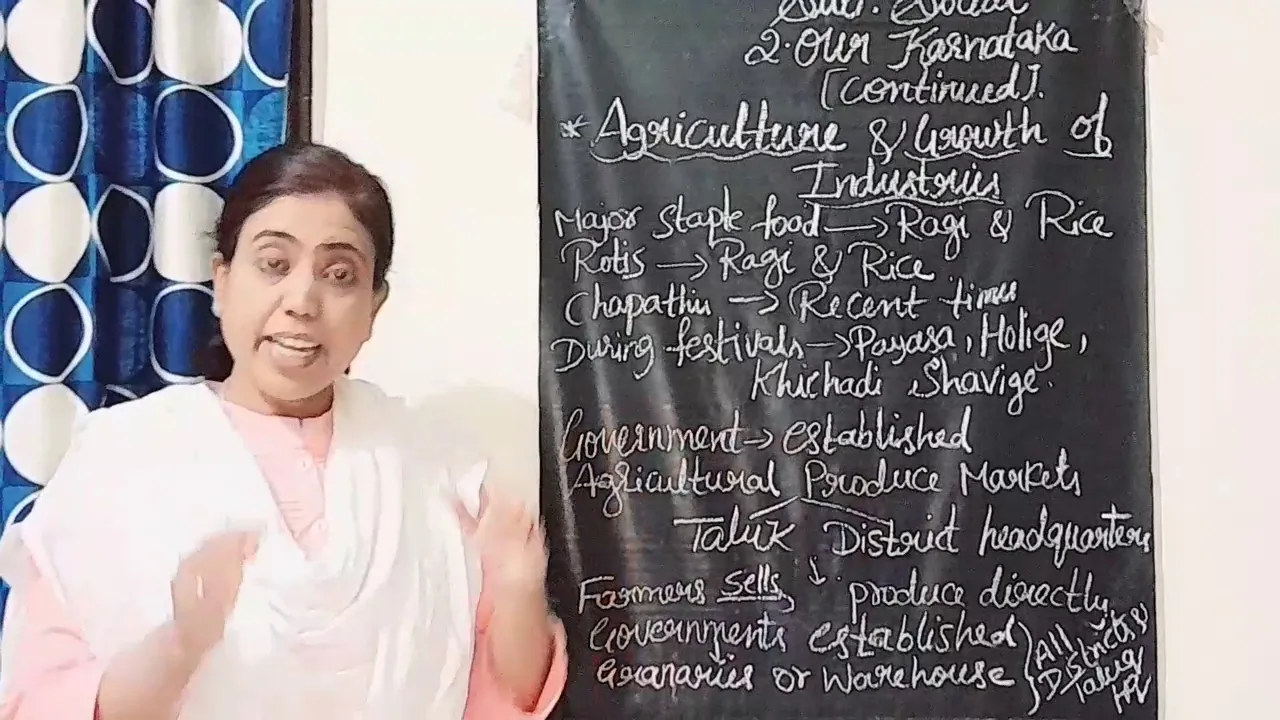 Sub: Social
2. Our Karnataka
[Continued].
* Agriculture & Growth of
Industries
Major Staple food → Ragi & Rice
Rotis → Ragi & Rice
Chapathis → Recent times
During festivals → Payasa, Holige,
Khichadi Shavige.
Government → established
Agricultural Produce Markets
Taluk District headquarters
Farmers sells ↓ produce directly
Governments established } All
Granaries or Warehouse } Districts &
Taluq